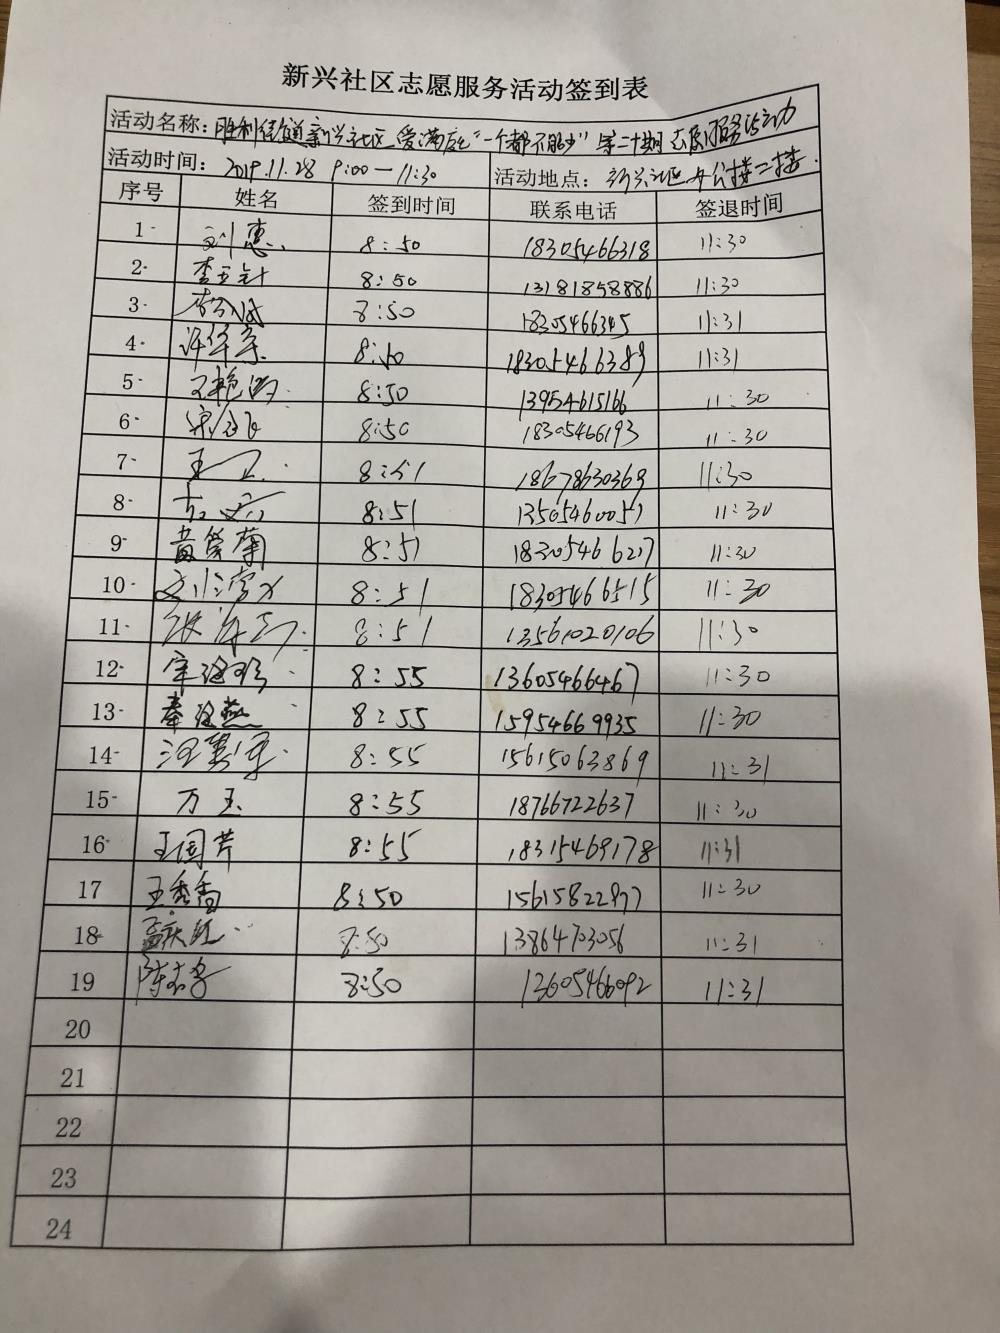 新兴社区志愿服务活动签到表
活动名称：胜利街道新兴社区爱满夕阳"一个都不能少"第二十期志愿服务活动
活动时间：2019.11.28 9:00—11:30 活动地点：新兴社区办公楼二楼.
序号 姓名 签到时间 联系电话 签退时间
1 刘惠 8:50 18305466318 11:30
2 8:50 13181858886 11:30
3 8:50 18305466345 11:31
4 8:50 18305466389 11:31
5 王艳 8:50 13954615166 11:30
6 8:50 18305466193 11:30
7 8:51 18678630369 11:30
8 8:51 13505460051 11:30
9 黄笑菊 8:51 18305466217 11:30
10 8:51 18305466515 11:30
11 8:51 13561020106 11:30
12 8:55 13605466467 11:30
13 8:55 15954669935 11:30
14 8:55 15615063869 11:31
15 万玉 8:55 18766722637 11:30
16 王国芹 8:55 18315469178 11:31
17 王秀香 8:50 15615822977 11:30
18 孟庆红 8:50 13864703056 11:31
19 陈志 8:50 13605466092 11:31
20
21
22
23
24